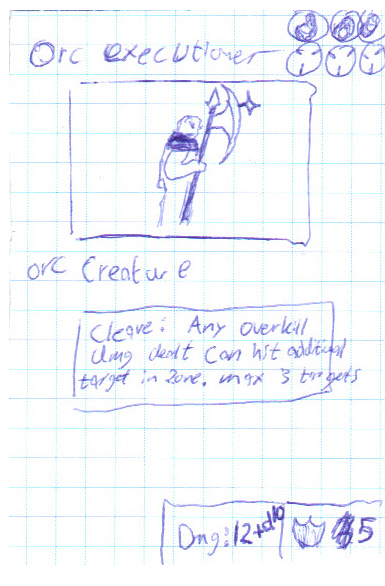 Orc executioner
orc Creature
Cleave: Any overkill
dmg dealt can hit additional
target in zone. max 3 targets
Dmg: 12+d10 5